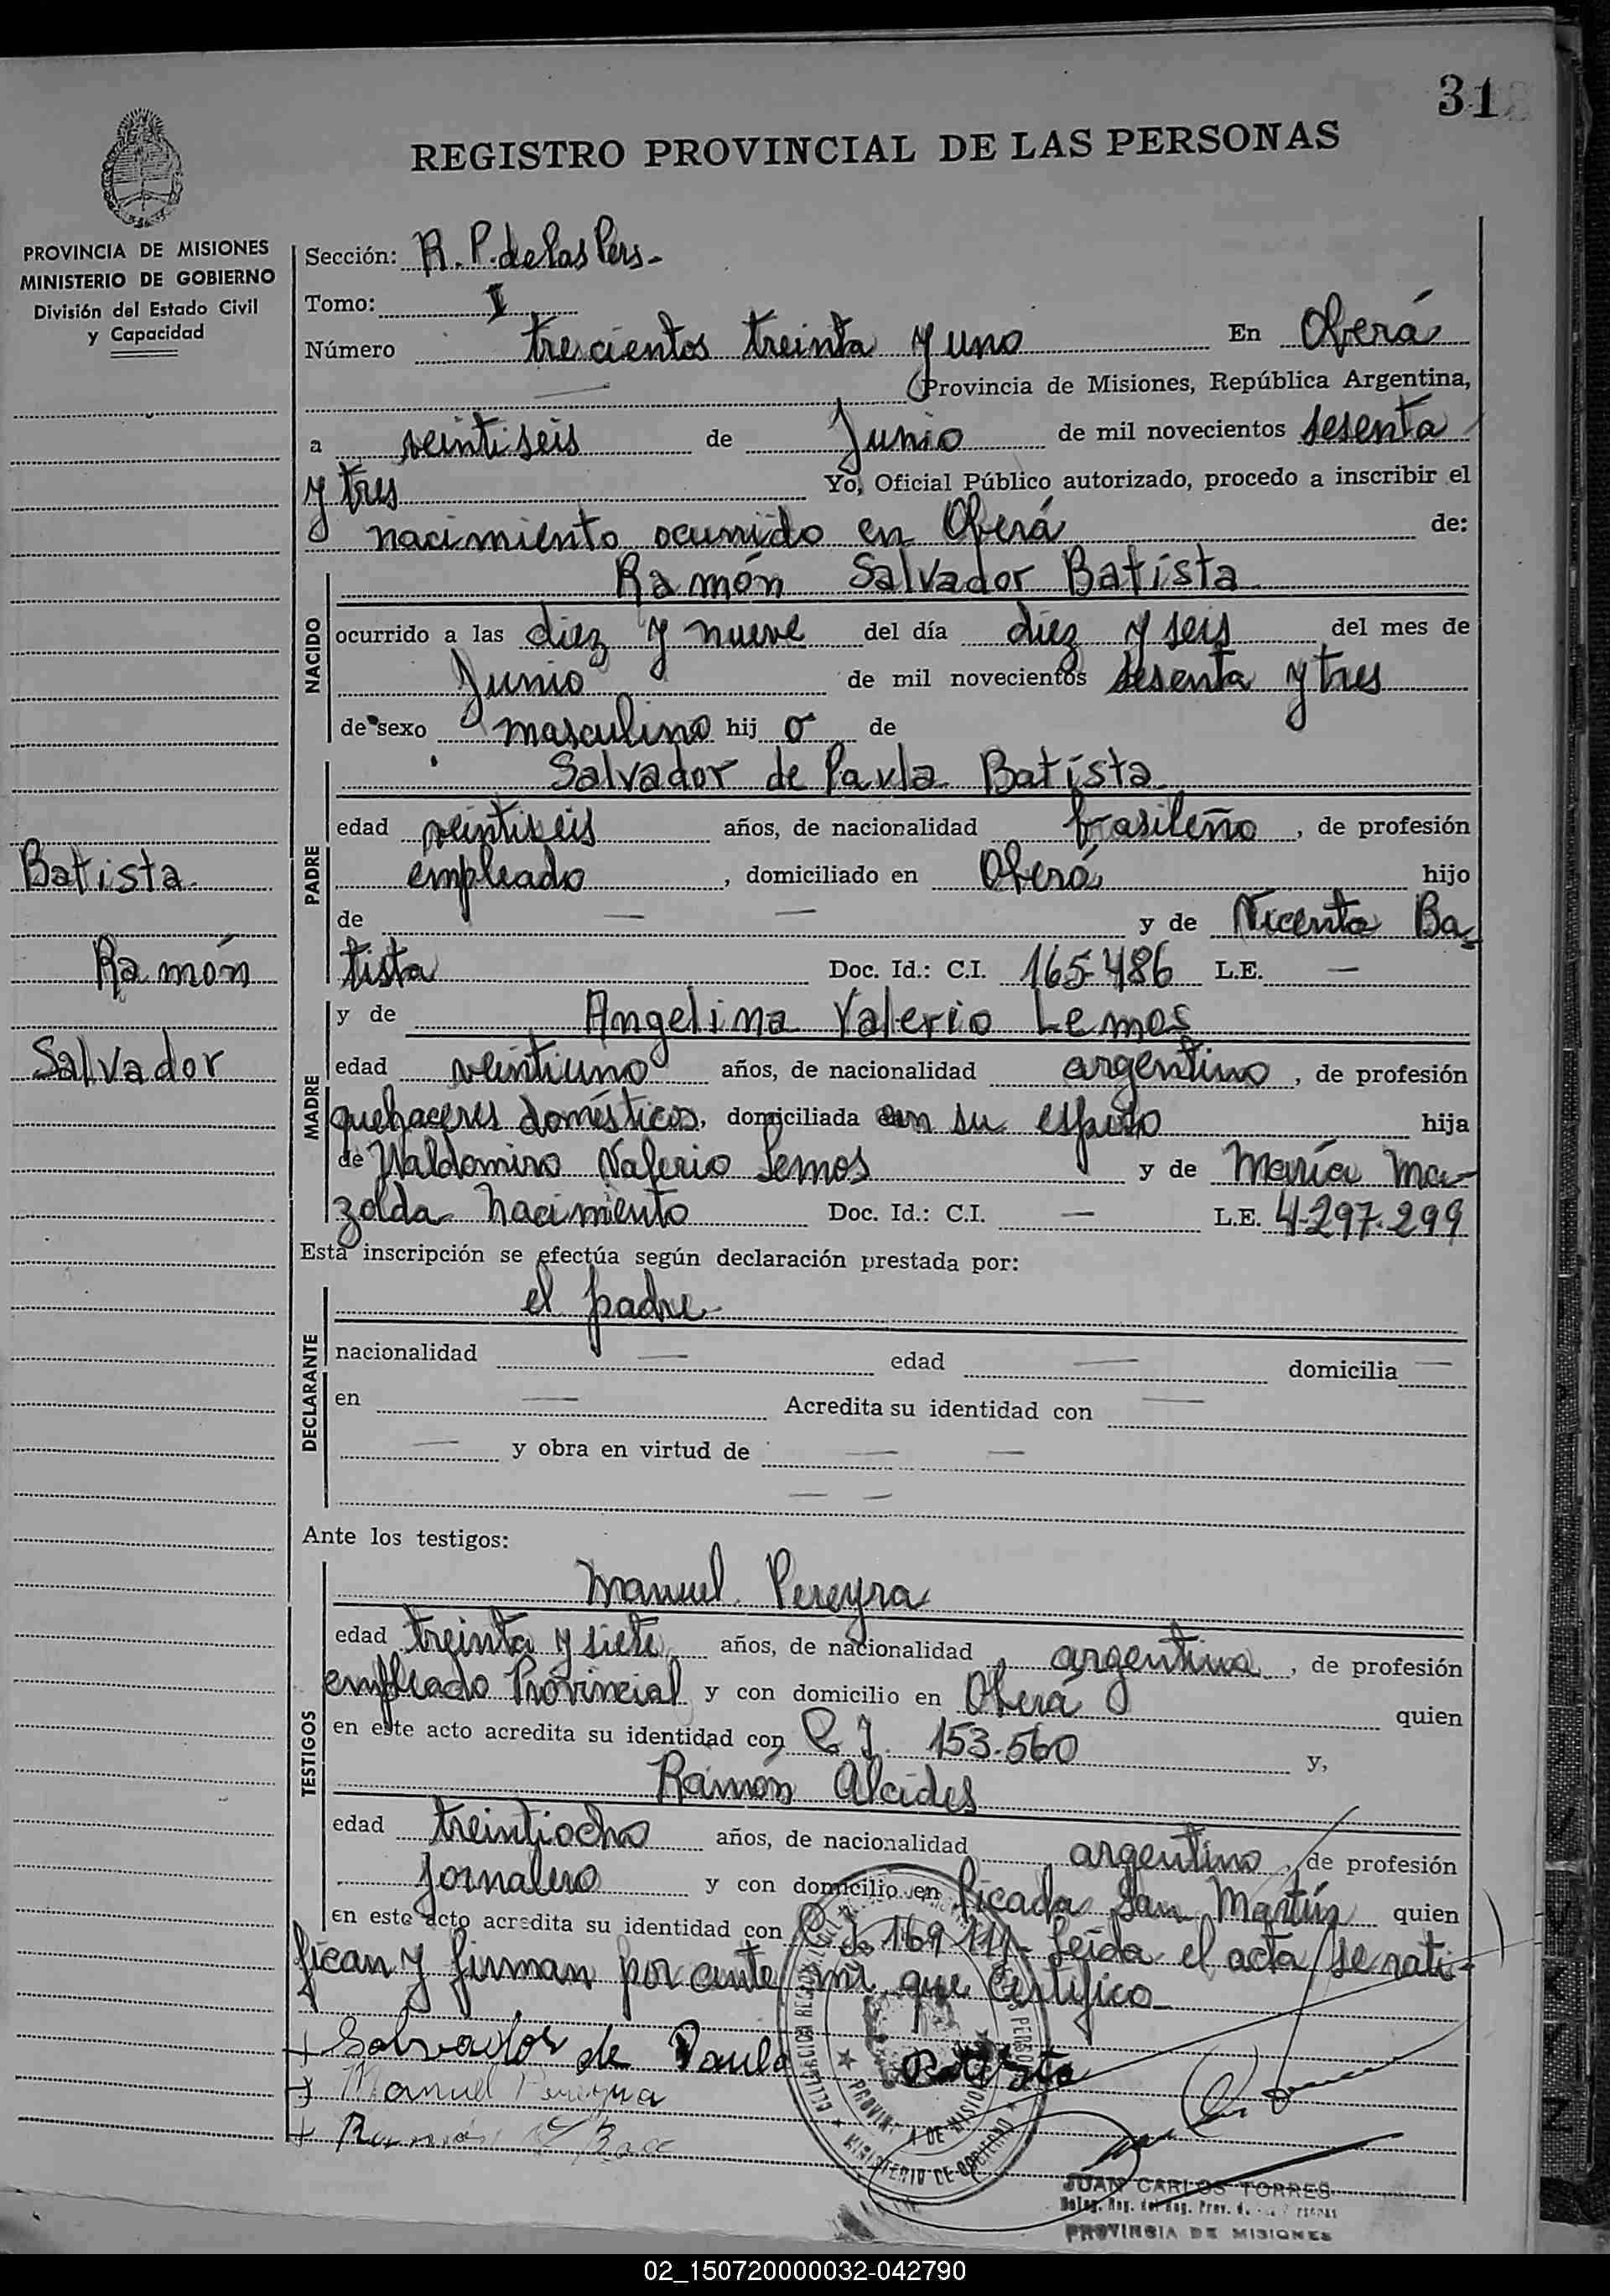 31
REGISTRO PROVINCIAL DE LAS PERSONAS
PROVINCIA DE MISIONES
MINISTERIO DE GOBIERNO
División del Estado Civil
y Capacidad
Sección: R. P. de las Pers.
Tomo: I
Número trecientos treinta y uno En Oberá
Provincia de Misiones, República Argentina,
a veintiseis de Junio de mil novecientos sesenta
y tres Yo, Oficial Público autorizado, procedo a inscribir el
nacimiento ocurrido en Oberá de:
NACIDO
Ramón Salvador Batista
ocurrido a las diez y nueve del día diez y seis del mes de
Junio de mil novecientos sesenta y tres
de sexo masculino hij o de
PADRE
Salvador de Paula Batista
edad veintiseis años, de nacionalidad brasileño, de profesión
empleado, domiciliado en Oberá hijo
de — — y de Vicenta Ba-
tista Doc. Id.: C.I. 165486 L.E. —
Batista
Ramón
Salvador
MADRE
y de Angelina Valerio Lemos
edad veintiuno años, de nacionalidad argentino, de profesión
quehaceres domésticos, domiciliada con su esposo hija
de Waldomiro Valerio Lemos y de María Ma-
zolda Nacimiento Doc. Id.: C.I. — L.E. 4.297.299
Esta inscripción se efectúa según declaración prestada por:
DECLARANTE
el padre
nacionalidad — edad — domicilia —
en — Acredita su identidad con —
— y obra en virtud de — —
— —
Ante los testigos:
TESTIGOS
Manuel Pereyra
edad treinta y siete años, de nacionalidad argentina, de profesión
empleado Provincial y con domicilio en Oberá quien
en este acto acredita su identidad con C I. 153.560 y,
Ramón Alcides
edad treintiocho años, de nacionalidad argentino, de profesión
Jornalero y con domicilio en Picada San Martín quien
en este acto acredita su identidad con C I. 169 111- Leída el acta se rati-
fican y firman por ante mi, que certifico
+ Salvador de Paula Batista
+ Manuel Pereyra
+ Ramón
PROVINCIA DE MISIONES
MINISTERIO DE GOBIERNO
JUAN CARLOS TORRES
PROVINCIA DE MISIONES
02_150720000032-042790